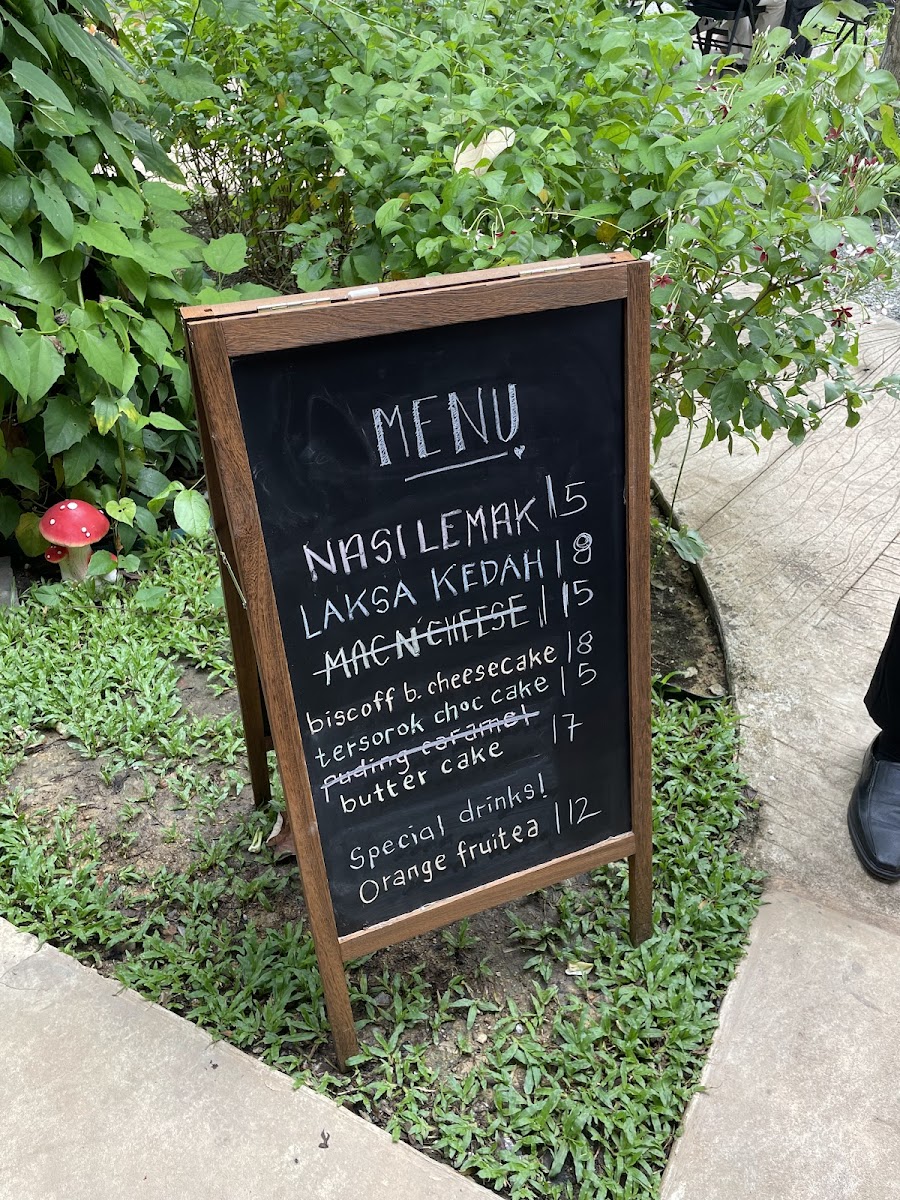 MENU
NASI LEMAK 15
LAKSA KEDAH 18
MAC N' CHEESE | 15
biscoff b. cheesecake 18
tersorok choc cake 15
puding caramel
butter cake 17
Special drinks!
Orange fruitea | 12